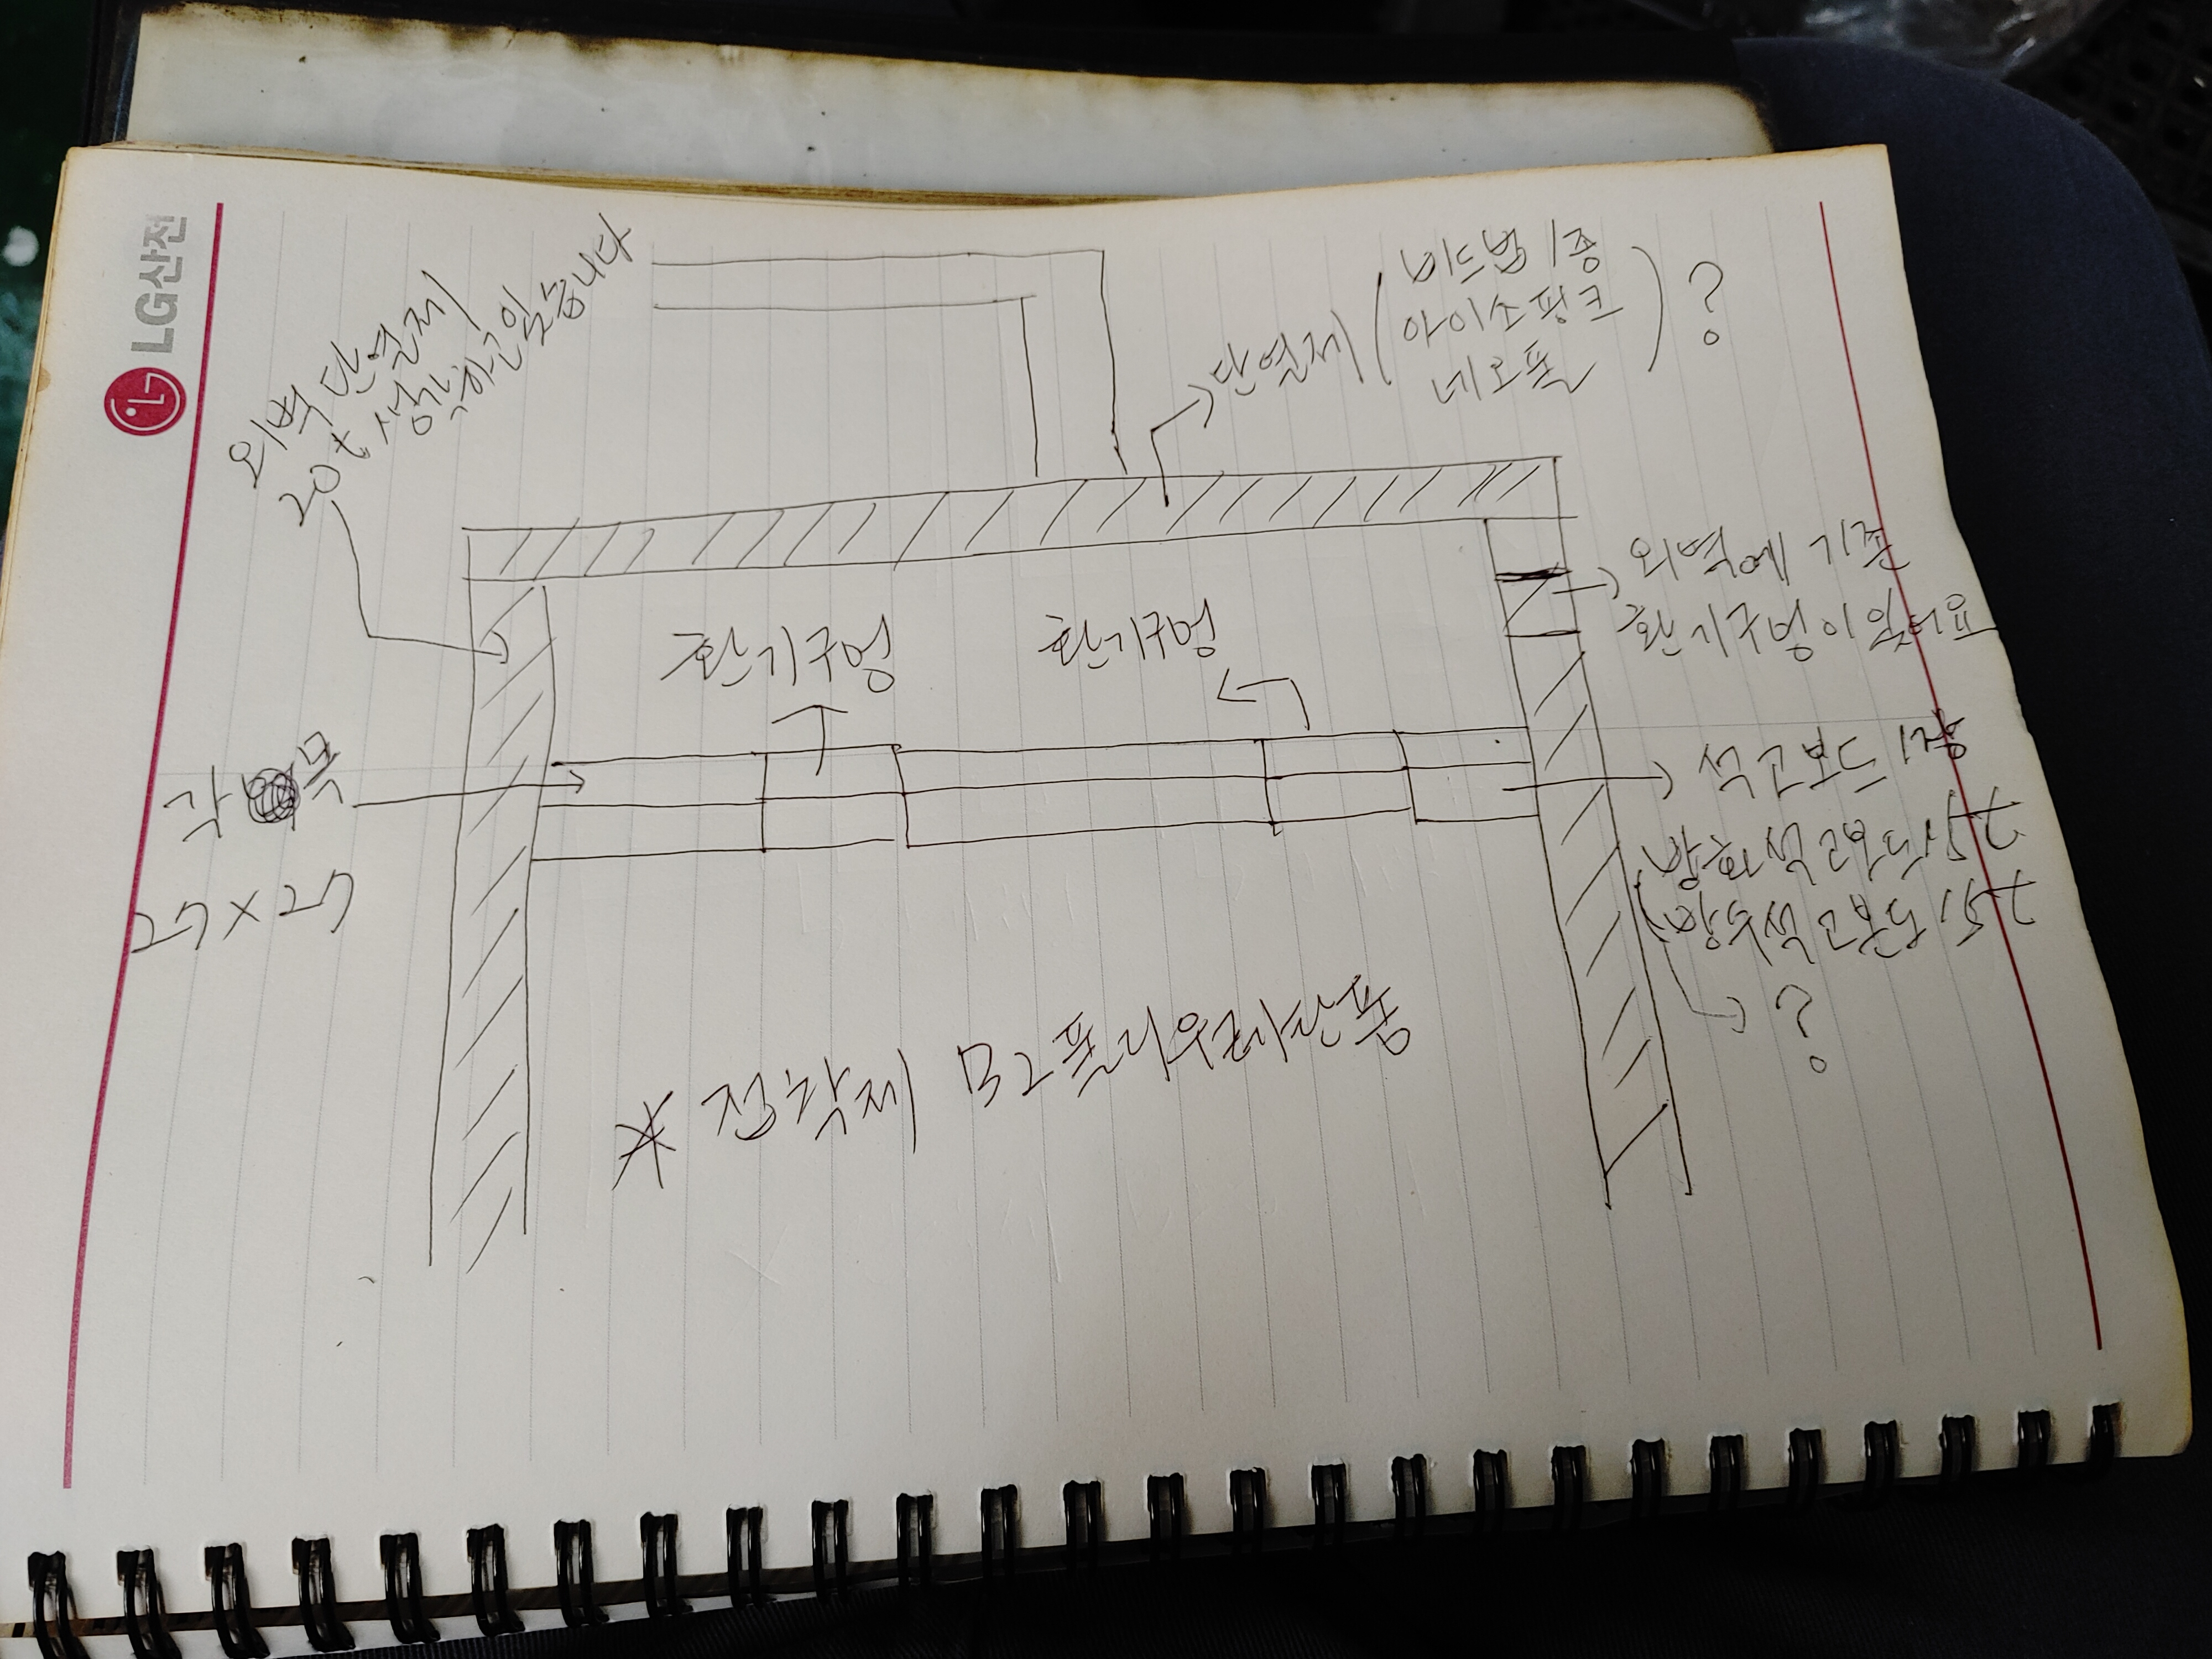 LG산전
외벽 단열제
20t 생각하곤있습니다
단열제 (비드법 1종
아이소핑크
네오폴) ?
외벽에 기존
환기구멍이 있어요
환기구멍
환기구멍
각목
27×27
석고보드 1장
방화석고보드 15t
(방수석고본드 15t
?
* 접착제 B2폴리우레탄폼